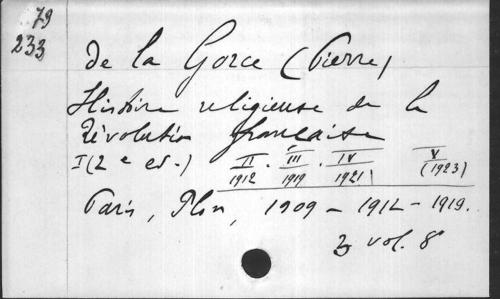 79
233
de la Gorce (Pierre)
Histoire religieuse de la
Révolution française
I (2e ed.) II . III . IV V
1912 1919 1921 (1923)
Paris, Plon, 1909 - 1912 - 1919.
3 vol. 8°